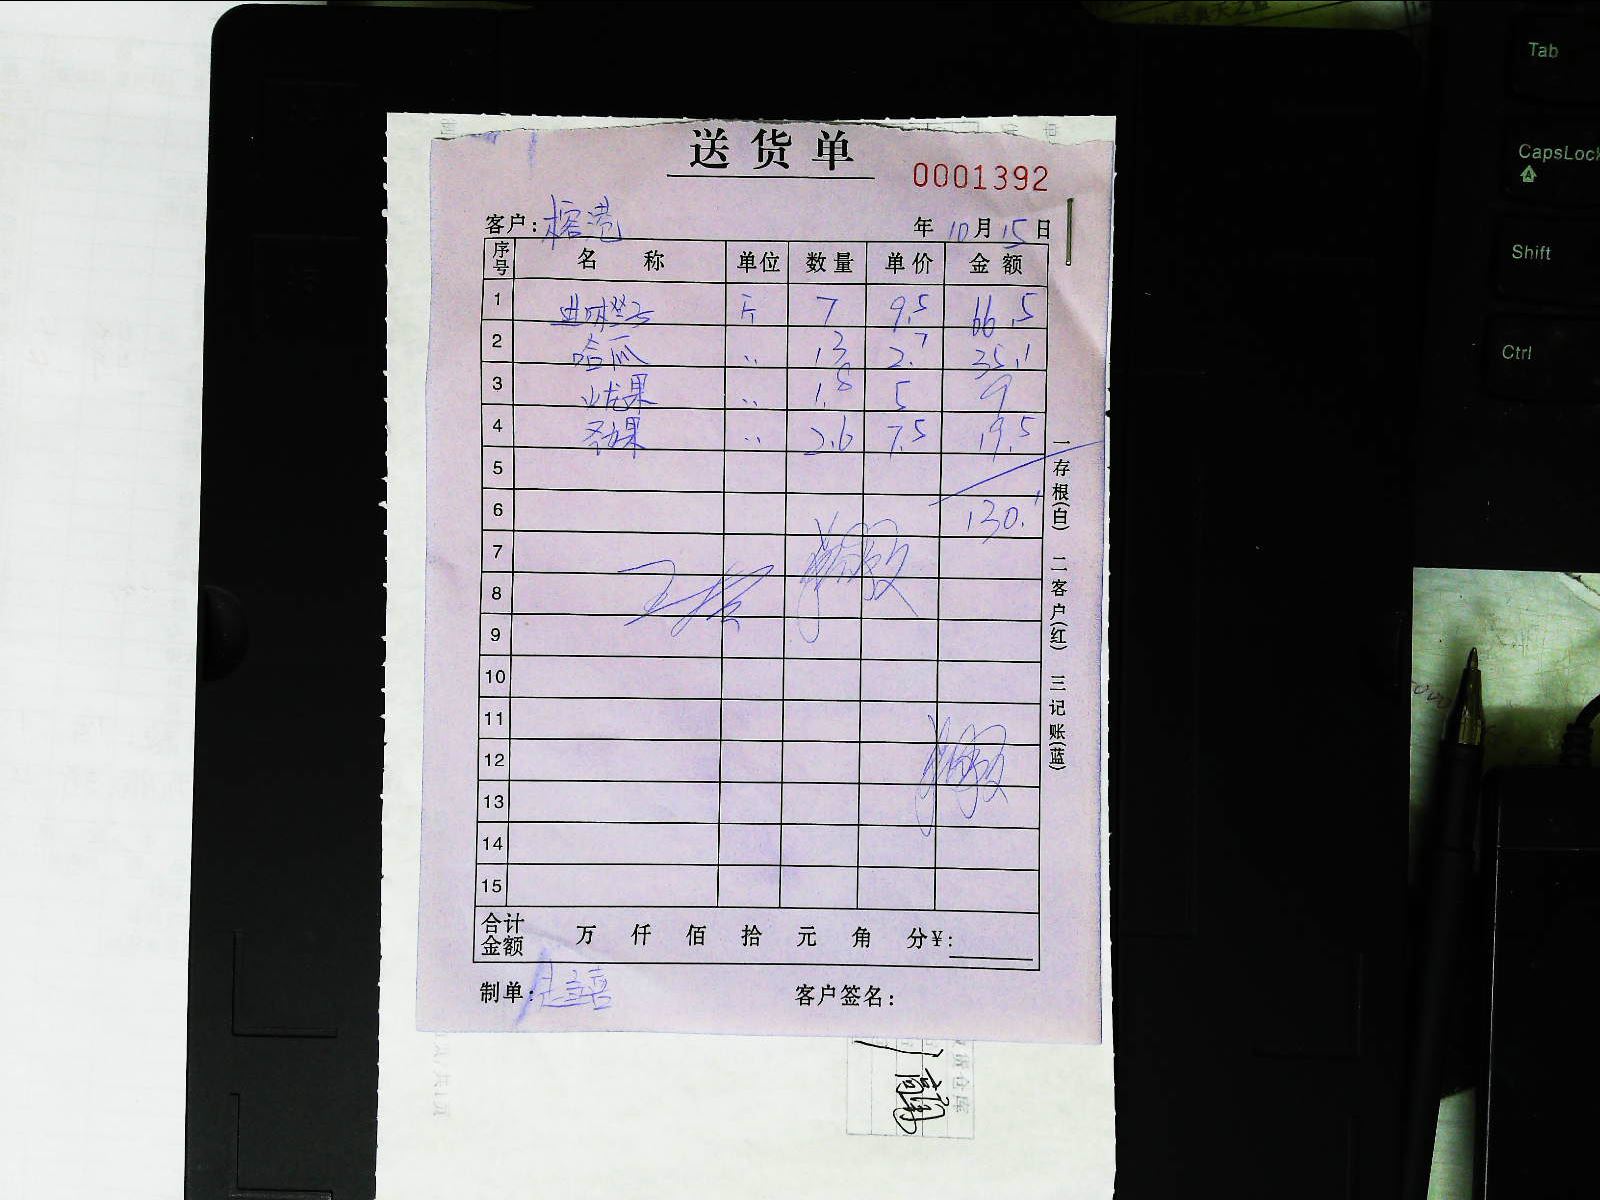 送货单
0001392
客户: 榕港 年 10 月 15 日
序号 名 称 单位 数量 单价 金额
1 斤 7 9.5 66.5
2 哈瓜 〃 13 2.7 35.1
3 火龙果 〃 1.8 5 9
4 圣女果 〃 2.6 7.5 19.5
5
6 130.1
7
8
9
10
11
12
13
14
15
合计金额 万 仟 佰 拾 元 角 分¥:
制单: 客户签名:
一存根(白) 二客户(红) 三记账(蓝)
Tab
CapsLock
Shift
Ctrl